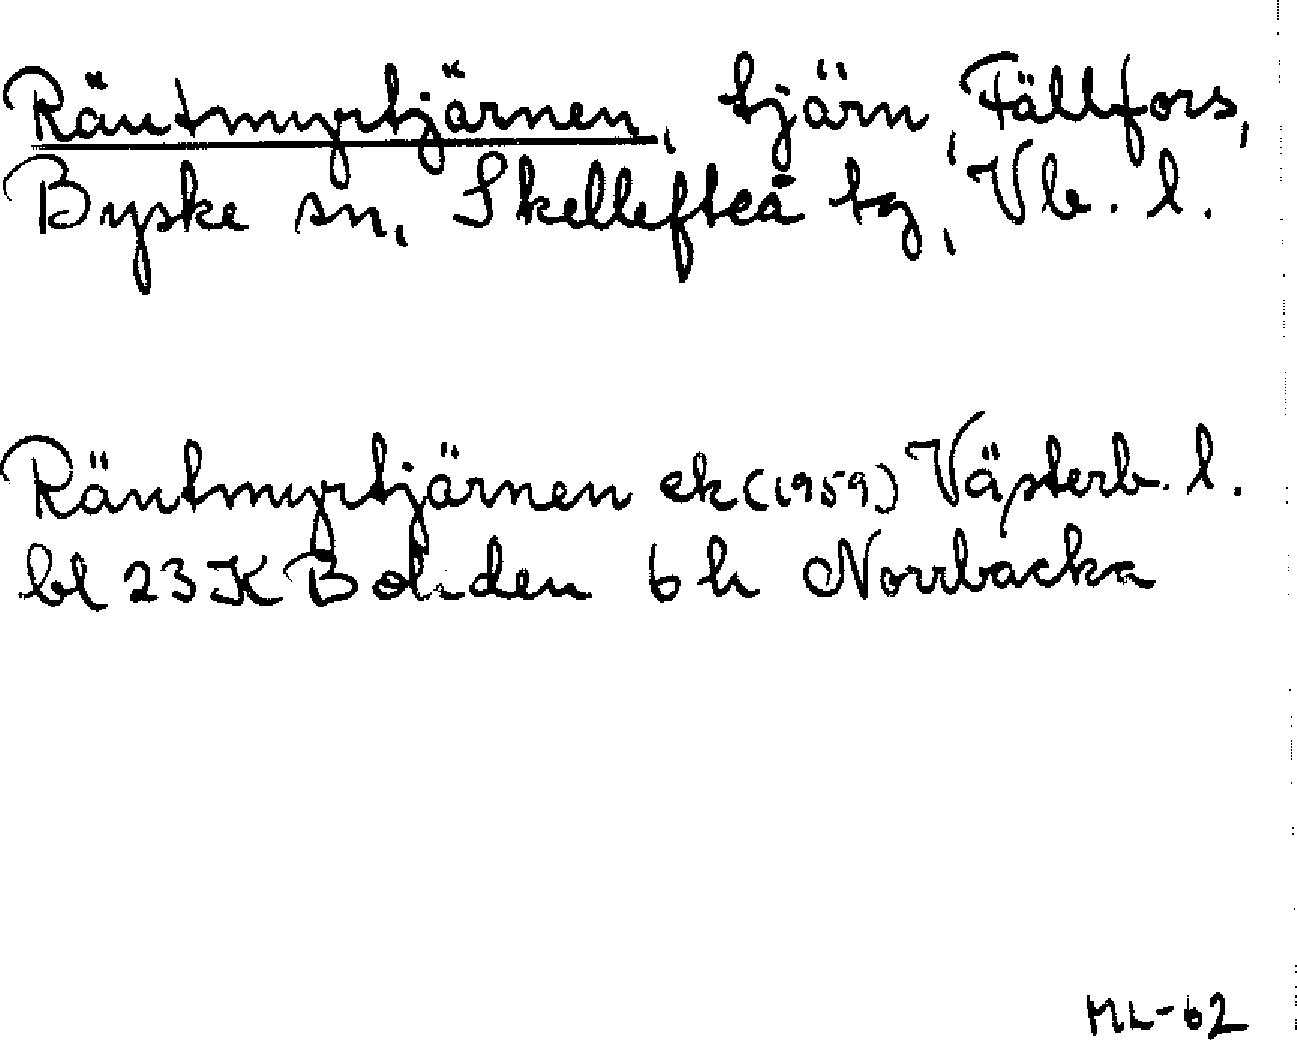 Räntmyrtjärnen, tjärn, Fällfors,
Byske sn, Skellefteå tg, Vb. l.
Räntmyrtjärnen ek (1959) Västerb. l.
bl 23 K Boliden 6 h Norrbacka
ML-62